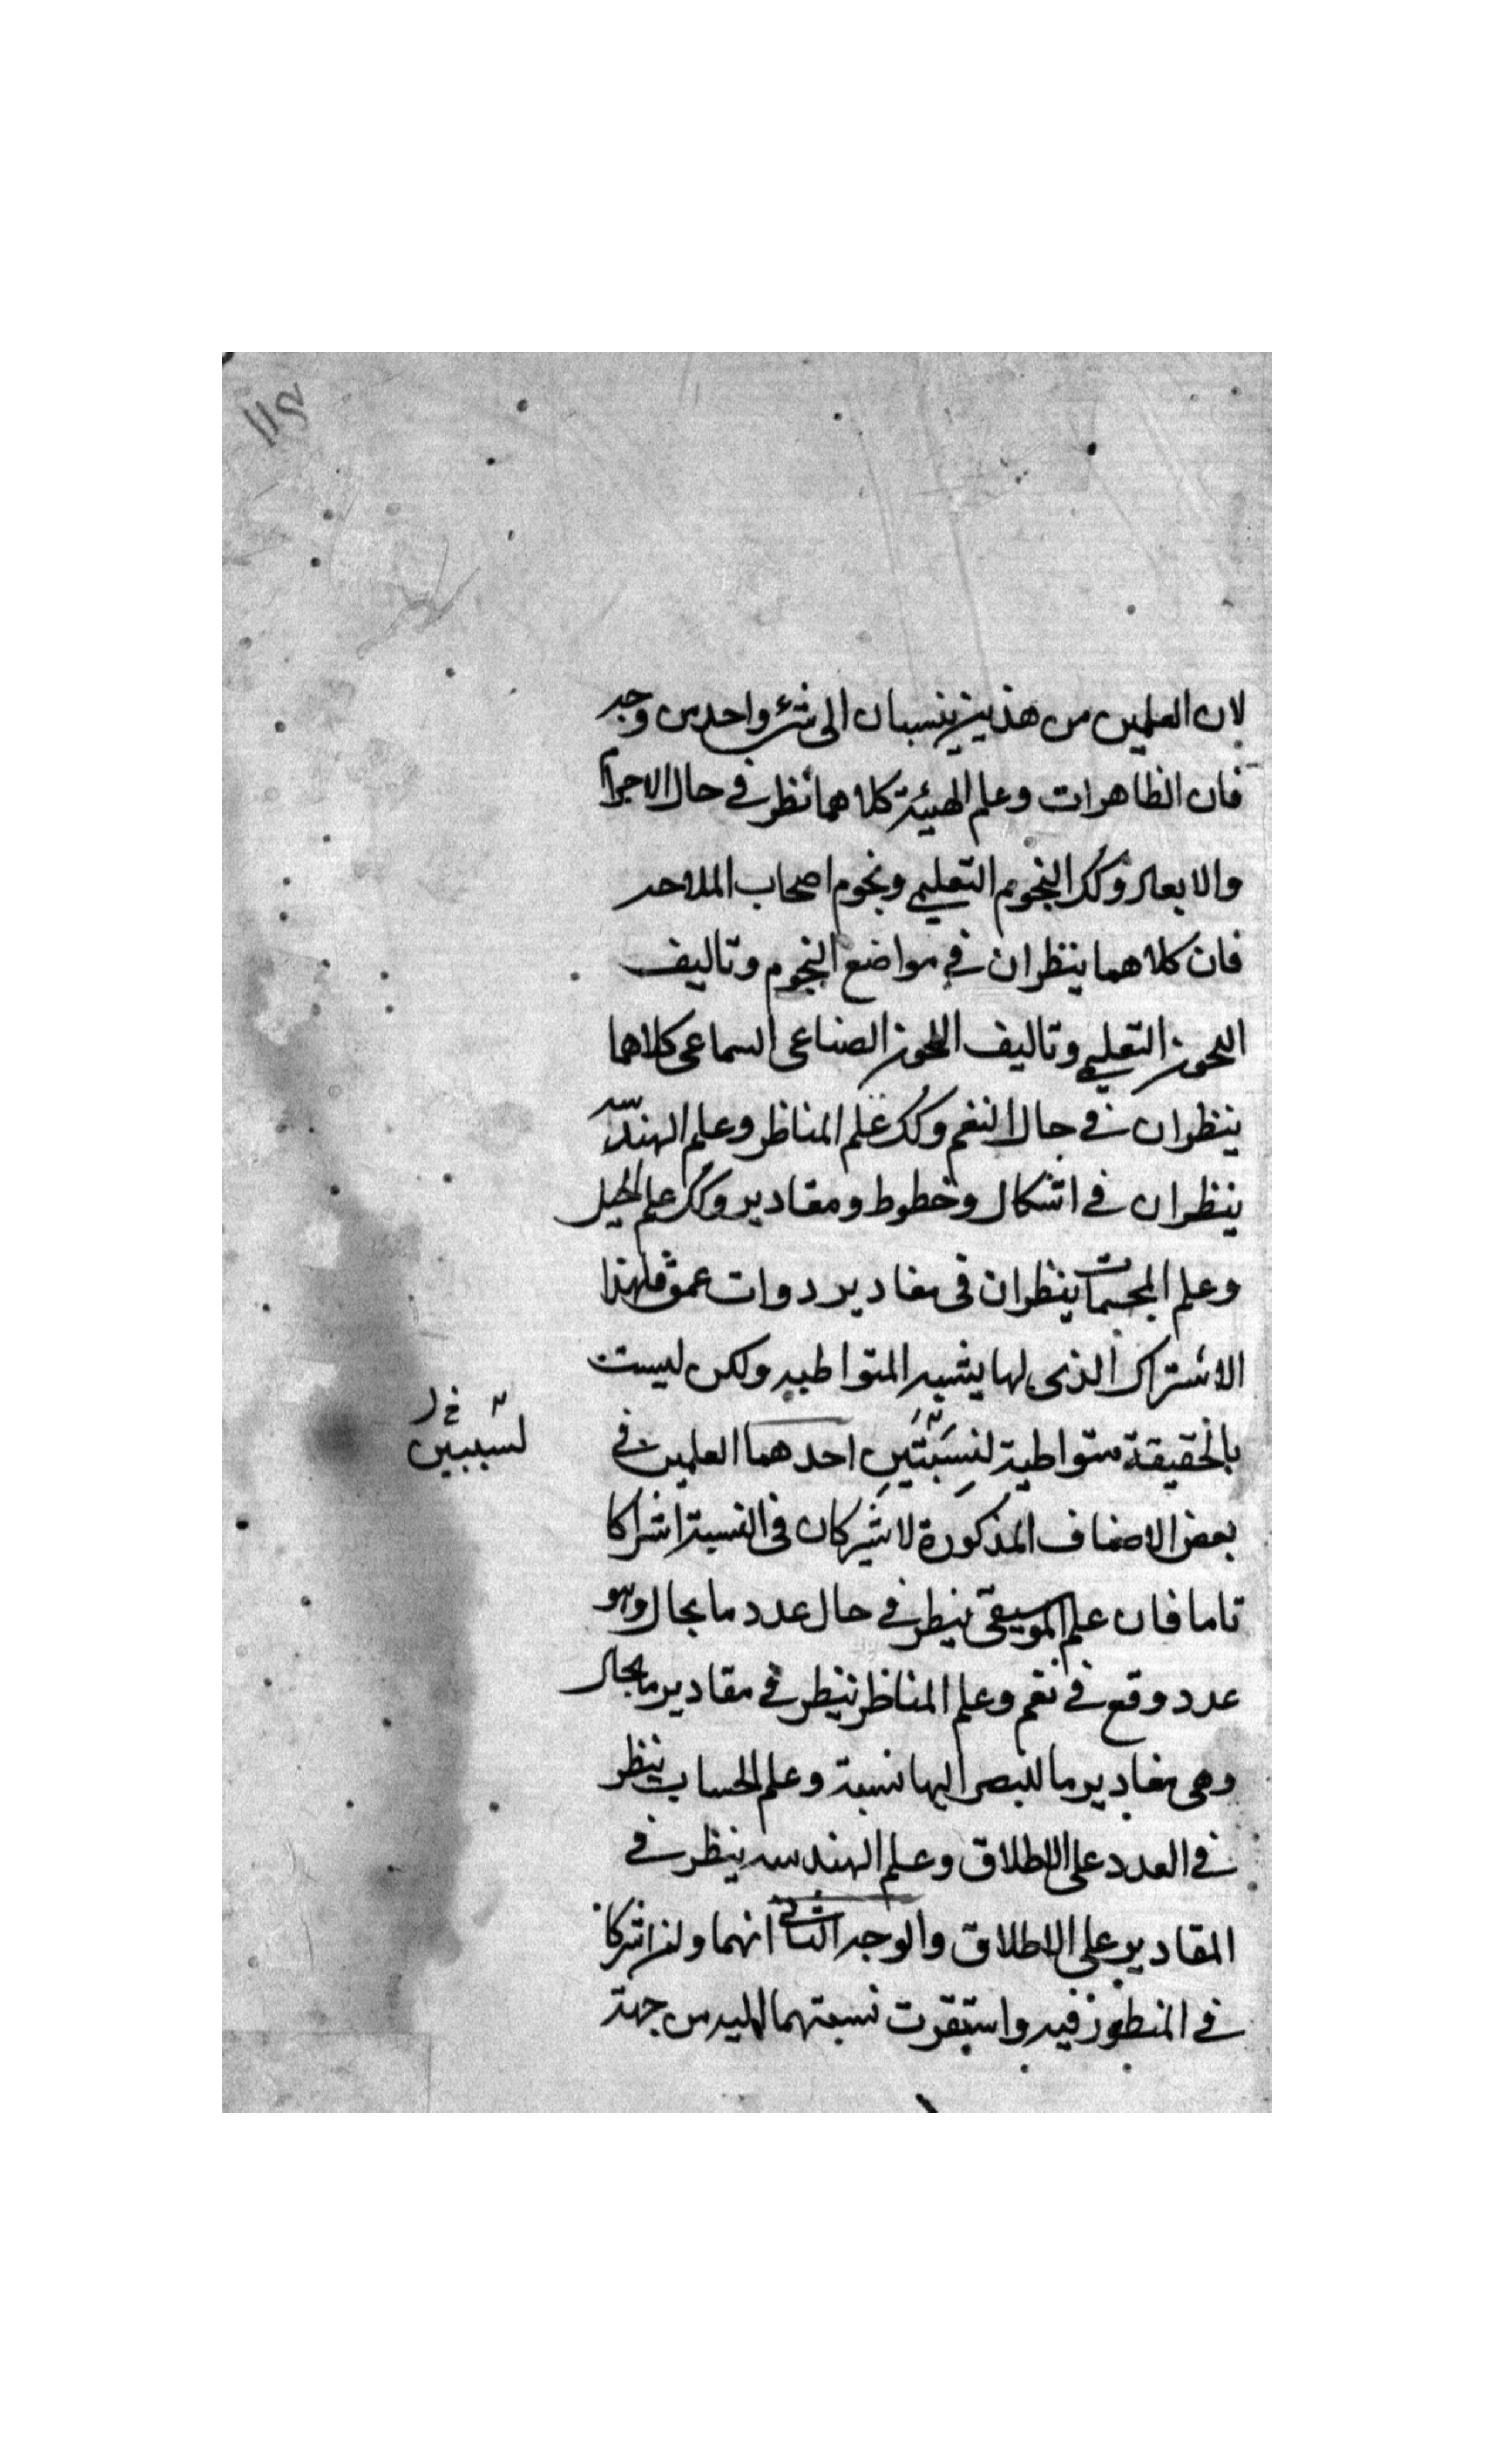 لان العلمين من هذين ينسبان الى شئ واحد من وجه
فان الظاهرات وعلم الهيئة كلاهما تنظر في حال الاجرام
والابعاد وكك النجوم التعليمي ونجوم اصحاب الملاحه
فان كلاهما ينظران في مواضع النجوم وتاليف
اللحون التعليمي وتاليف اللحون الصناعى السماعى كلاهما
ينظران في حال النغم وكك علم المناظر وعلم الهندسه
ينظران في اشكال وخطوط ومقادير وكك علم الحيل
وعلم المجسمات ينظران فى مقادير ذوات عمق فلهذا
الاشتراك الذى لها يشبه المتواطيه ولكن ليست
بالحقيقة متواطية لنسبتين احدهما العلمين في
لسببين خ ل
بعض الاصناف المذكورة لا يشتركان فى النسبة اشتراكا
تاما فان علم الموسيقى ينظر في حال عدد ما بحال وهو
عدد وقع في نغم وعلم المناظر ينظر في مقادير ما بحال
وهى مقادير ما للبصر اليها نسبة وعلم الحساب ينظر
في العدد على الاطلاق وعلم الهندسه ينظر في
المقادير على الاطلاق والوجه الثانى انهما ولن اشتركا
في المنظور فيه واستقرت نسبتهما اليه من جهة